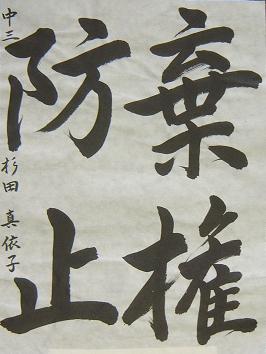 棄権
防止
中三 杉田 真依子